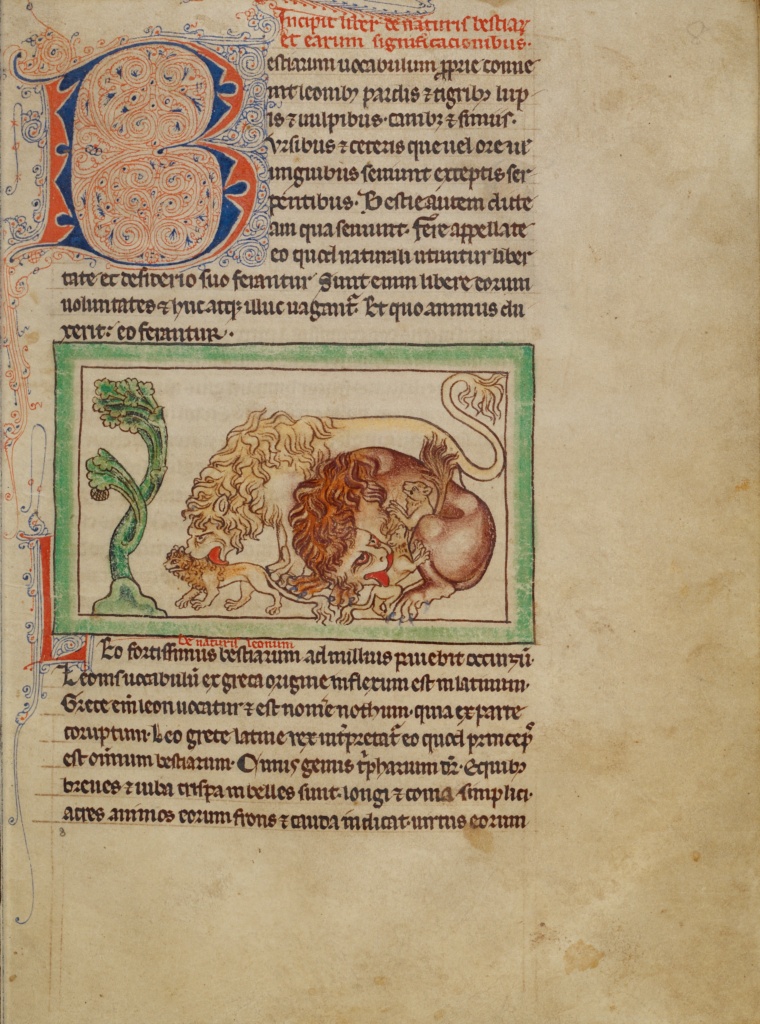 Incipit liber de naturis bestiaꝝ
et earum significacionibus.
Bestiarum uocabulum ꝓprie conue
nit leonibꝫ pardis ⁊ tigribꝫ lup
is ⁊ uulpibus. canibꝫ ⁊ simiis.
Vrsibus ⁊ ceteris que uel ore uł
unguibus seuiunt exceptis ser
pentibus. Bestie autem dicte
am qua seuiunt. Fere appellate
eo quod naturali utuntur liber
tate et desiderio suo ferantur Sunt enim libere eorum
uoluntates ⁊ huc atqꝫ illuc uagant̃. Et quo animus du
xerit: eo ferantur.
De naturis leonum
Leo fortissimus bestiarum ad nullius pauebit
Leonis uocabulū ex greca origine inflexum est in latinum.
Grece em̄ leon uocatur ⁊ est nomē nothum. quia ex parte
coruptum. Leo grece latine rex int̃pretat̃ eo quod princeps
est omnium bestiarum. Cuius genus t̃pharium dr̄. Equibꝫ
breues ⁊ iuba crispa inbelles sunt. longi ⁊ coma simplici.
acres animos eorum frons ⁊ cauda indicat. uirtus eorum